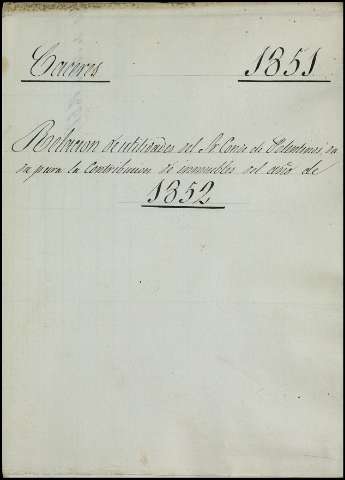 Caceres 1851.
Relacion de utilidades del Sr Conde de da
da para la Contribucion de inmuebles del año de
1852